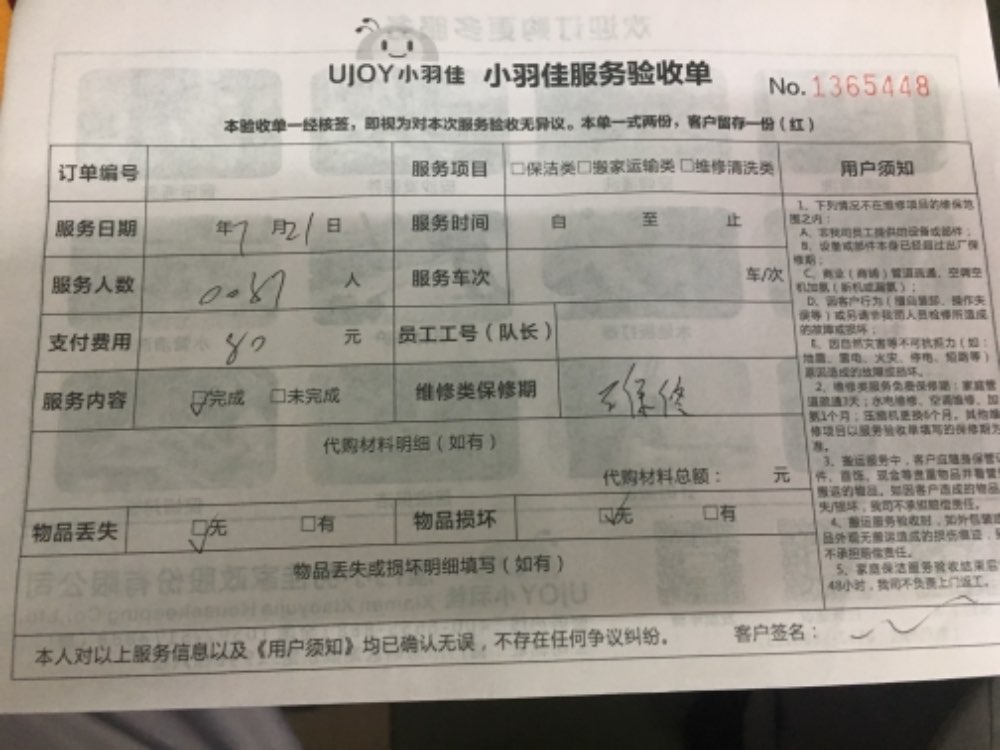 UJOY小羽佳 小羽佳服务验收单
No. 1365448
本验收单一经核签，即视为对本次服务验收无异议。本单一式两份，客户留存一份（红）
订单编号 服务项目 □保洁类□搬家运输类□维修清洗类
服务日期 年7月21日 服务时间 自 至 止
服务人数 人 服务车次 车/次
支付费用 80 元 员工工号（队长）
服务内容 □完成 □未完成 维修类保修期 保修
代购材料明细（如有）
代购材料总额： 元
物品丢失 □无 □有 物品损坏 □无 □有
物品丢失或损坏明细填写（如有）
本人对以上服务信息以及《用户须知》均已确认无误，不存在任何争议纠纷。 客户签名：
用户须知
1、下列情况不在维修项目的维保范
围之内：
A、非我司员工提供的设备或部件；
B、设备或部件本身已经超过出厂保
修期；
C、商业（商铺）管道疏通、空调空
机加氨（新机或漏氨）；
D、因客户行为（擅自装卸、操作失
误等）或另请非我司人员检修所造成
的故障或损坏；
E、因自然灾害等不可抗拒力（如：
地震、雷电、火灾、停电、短路等）
原因造成的故障或损坏。
2、维修类服务免费保修期：家庭管
道疏通3天；水电维修、空调维修、加
氨1个月；压缩机更换6个月。其他维
修项目以服务验收单填写的保修期为
准。
3、搬运服务中，客户应随身保管证
件、首饰、现金等贵重物品并看管
搬运的物品。如因客户造成的物品
失/损坏，我司不承担赔偿责任。
4、搬运服务验收时，如外包装
品外观无搬运造成的损伤痕迹，
不承担赔偿责任。
5、家庭保洁服务验收结束后
48小时，我司不负责上门返工。